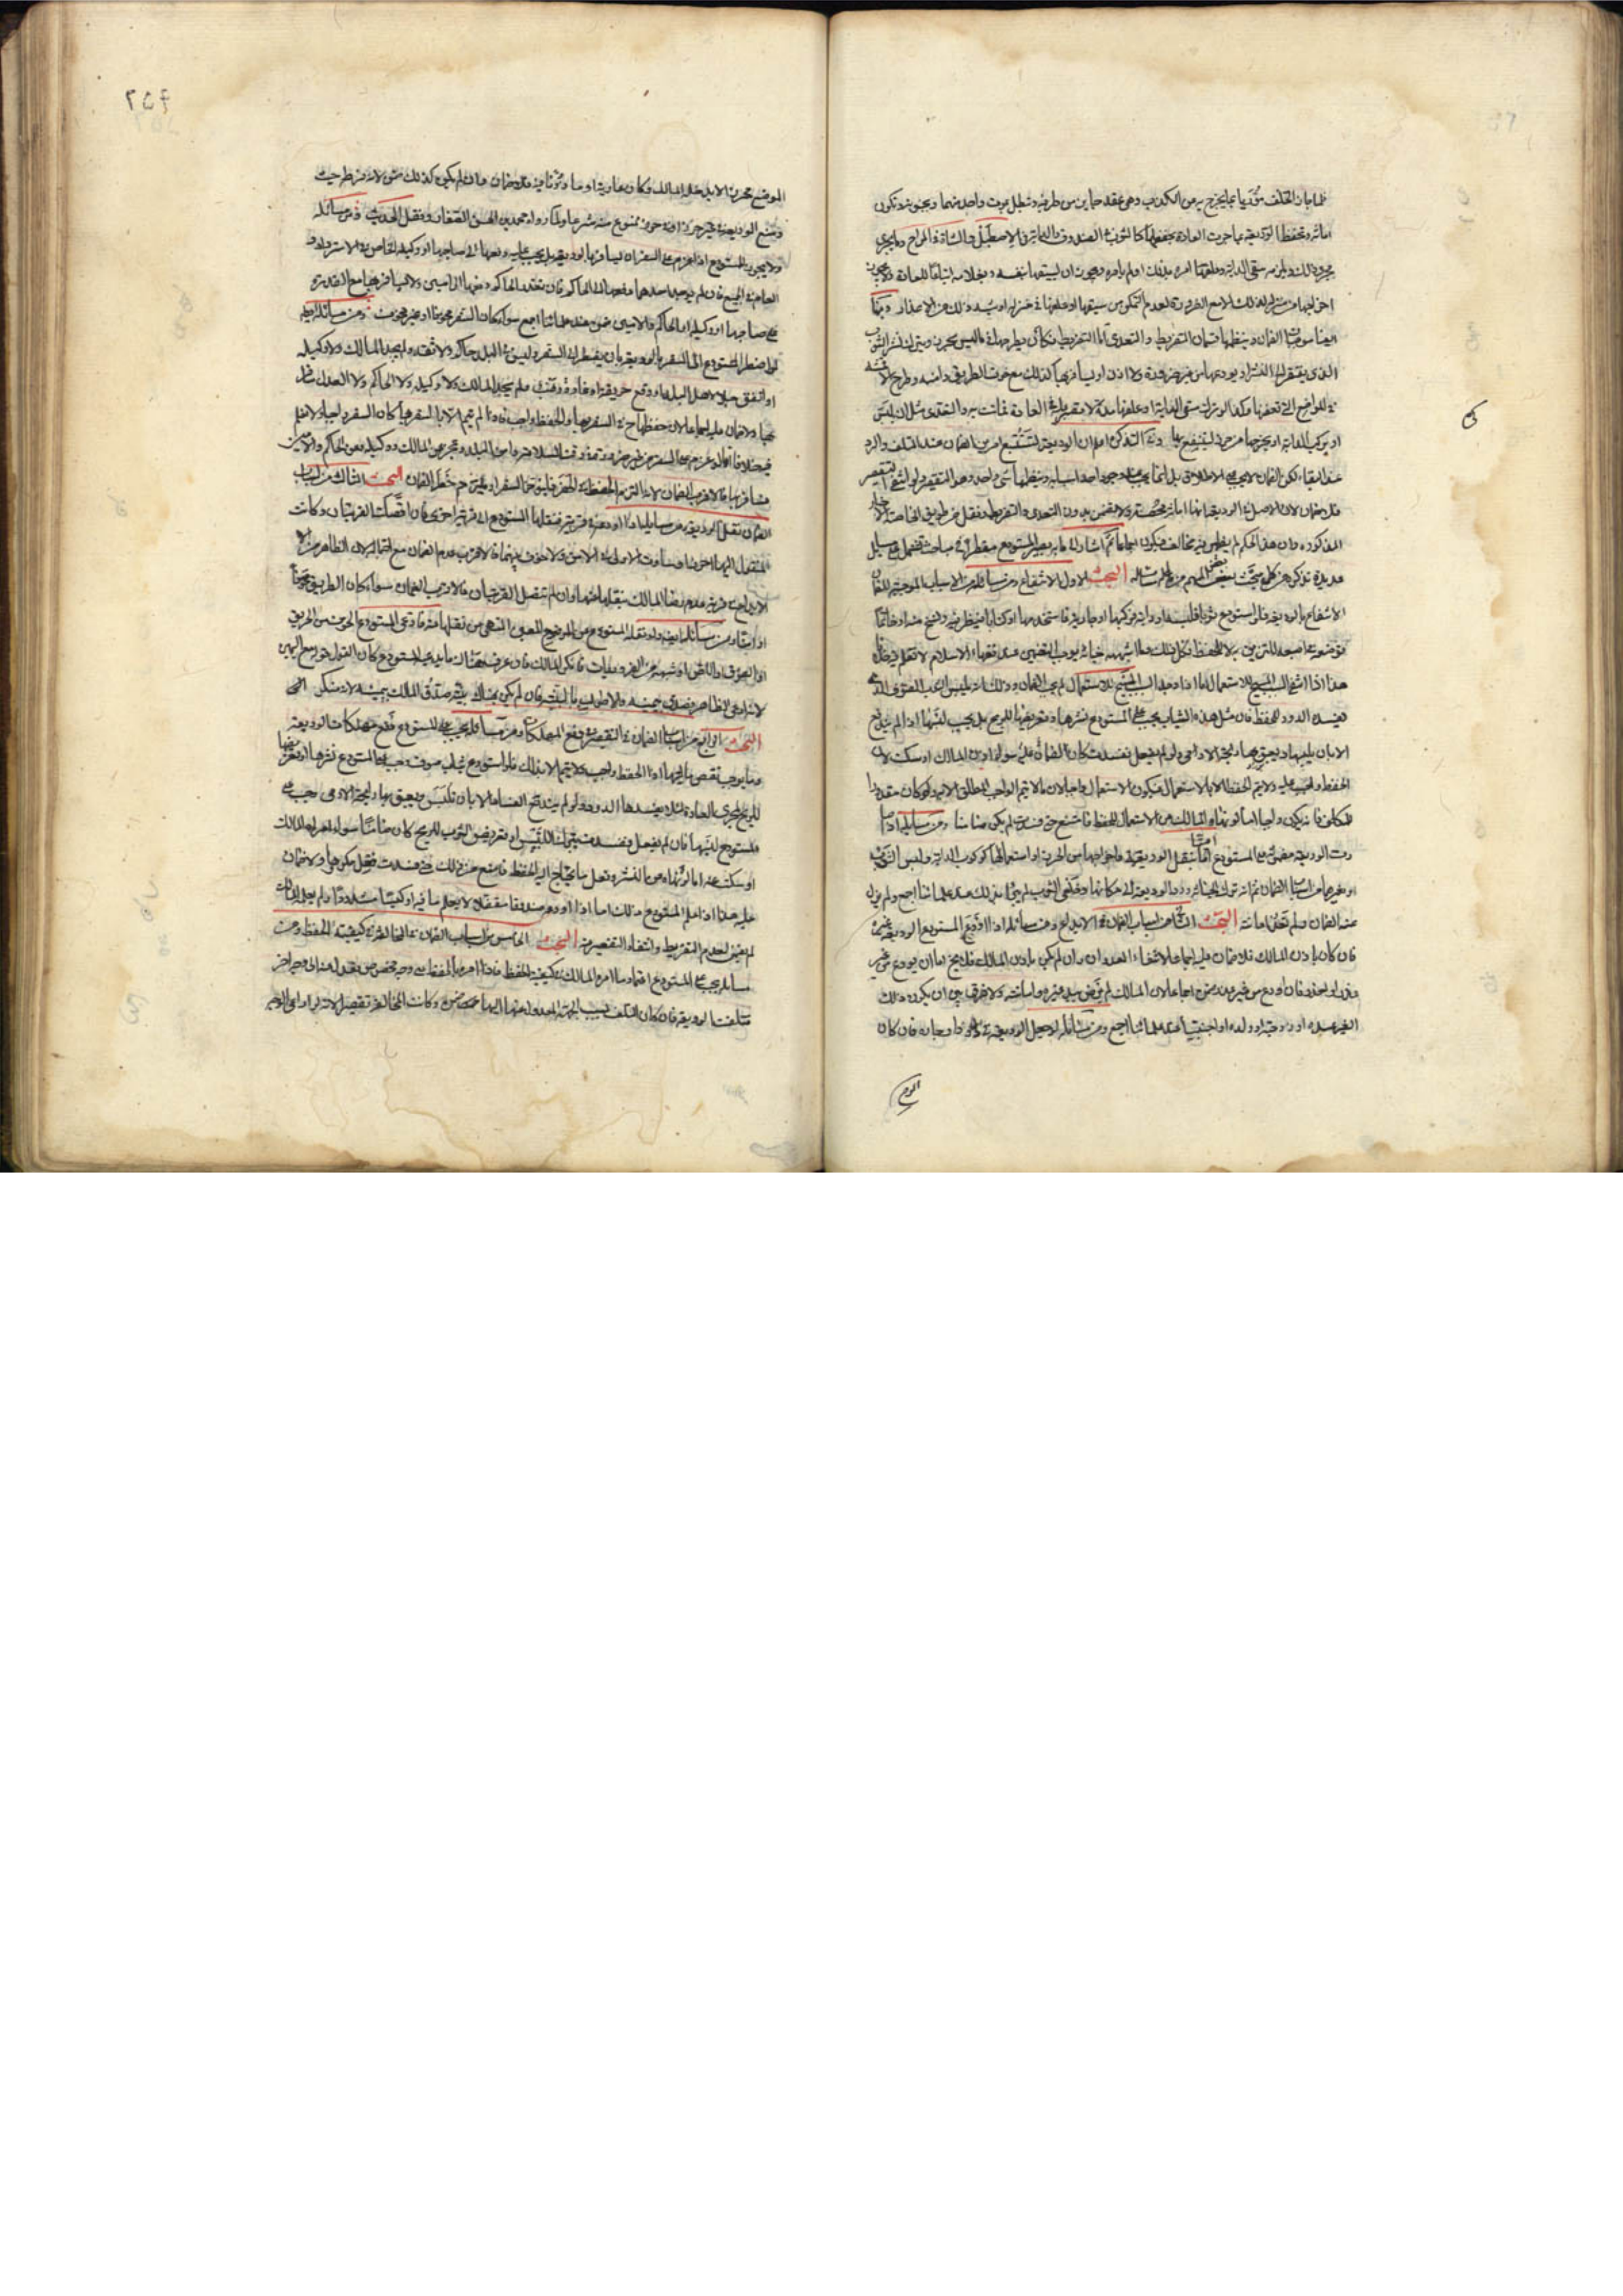 امانة وتحفظ الوديعة بما جرت العادة بحفظها كالثوب في الصندوق والدابة في الاصطبل والشاة في المراح وما يجرى
مجرى ذلك ويلزمه سقى الدابة وعلفها امره بذلك او لم يامره ويجوز ان يسقيها بنفسه وبغلامه اتباعا للعادة ولا يجوز
اخراجها من منزله لذلك الا مع الضرورة لعدم التمكن من سقيها او علفها في منزله او شبه ذلك من الاعذار
الضمان وينظمها قسمان التفريط والتعدى اما التفريط فكان يطرحها فيما ليس بحرز ويترك نشر الثوب
الذى يفتقر الى النشر او يودعها من غير ضرورة ولا اذن او يسافر بها كذلك مع خوف الطريق وامنه وطرح الاقمشة
في المواضع التى تعفنها وكذا لو ترك سقى الدابة او علفها مدة لا تصبر عليها في العادة فماتت به والتعدى مثل ان يلبس
او يركب الدابة او يخرجها من حرزها لينتفع بها وفي التذكرة اعلم ان الوديعة تستتبع امرين الضمان عند التلف والرد
عند البقاء لكن الضمان لا يجب على الاطلاق بل انما يجب عند وجود احد اسبابه وينظمها شئ واحد وهو التقصير ولو انتفى التقصير
فلا ضمان لان الاصل في الوديعة انها امانة محضة لا تضمن بدون التعدى والتفريط ونقل من طريق الخاصة الاخبار
المذكورة وان هذا الحكم لم يظهر فيه مخالف فيكون اجماعا ثم اشار الى ما به يصير المستودع مقصرا في مباحث تشتمل على مسائل
عديدة نذكر من كل مبحث بعض المهم من مسائله البحث الاول الانتفاع ومن مسائله من الاسباب الموجبة للضمان
الانتفاع بالوديعة فلو استودع ثوبا فلبسه او دابة فركبها او جارية فاستخدمها او كتابا فنظر فيه ونسخ منه او خاتما
فوضعه في اصبعه للتزين به لا للحفظ فكل ذلك وما اشبهه خيانة يوجب التضمين عند فقهاء الاسلام لا نعلم فيه خلافا
هذا اذا انتفى السبب المبيح للاستعمال اما اذا وجد السبب المبيح للاستعمال لم يجب الضمان وذلك ان يلبس الثوب الصوف الذى
يفسده الدود للحفظ فان مثل هذه الثياب يجب على المستودع نشرها وتعريضها للريح بل يجب لبسها اذا لم يندفع
الا بان يلبسها وتعبق بها رائحة الادمى ولو لم يفعل ففسدت كان الضمان عليه سواء اذن المالك او سكت لان
الحفظ واجب عليه ولا يتم الحفظ الا بالاستعمال فيكون الاستعمال واجبا لان ما لا يتم الواجب المطلق الا به وكان مقدورا
للمكلف فانه يكون واجبا اما لو نهاه المالك عن الاستعمال للحفظ فامتنع حتى فسدت لم يكن ضامنا ومن مسائله اذا صا
رت الوديعة مضمونة على المستودع اما بنقل الوديعة واخراجها من الحرز او استعمالها كركوب الدابة ولبس الثوب
او غيرهما من اسباب الضمان ثم انه ترك الخيانة ورد الوديعة الى مكانها وخلع الثوب لم يبرأ بذلك عند علمائنا اجمع ولم يزل
عنه الضمان ولم تعد امانته البحث الثانى من اسباب الضمان الايداع ومن مسائله اذا اودع المستودع الوديعة غيره
فان كان باذن المالك فلا ضمان عليه اجماعا لانتفاء العدوان وان لم يكن باذن المالك فلا يخ اما ان يودع من غير
عذر او لعذر فان اودع من غير عذر ضمن اجماعا لان المالك لم يرض بيد غيره وامانته ولا فرق بين ان يكون ذلك
الغير عبده او زوجته او ولده او اجنبيا عند علمائنا اجمع ومن مسائله لو جعل الوديعة في دار جاره فان كان
الموضع
٢٥٤
الموضع محرزا لا يدخله المالك وكان عارية او مأذونا فيه فلا ضمان وان لم يكن كذلك ضمن لانه فرط حيث
وضع الوديعة في غير حرزه او في حرز ممنوع منه شرعا ولما رواه محمد بن الحسن الصفار ونقل الحديث ومن مسائله
ولا يجوز للمستودع اذا عزم على السفر ان يسافر بالوديعة بل يجب عليه دفعها الى صاحبها او وكيله الخاص في الاسترداد او
العام في الجميع فان لم يوجد احدهما دفعها الى الحاكم فان تعذر الحاكم دفعها الى امين ولا يسافر بها مع القدرة
على صاحبها او وكيله او الحاكم والامين ضمن عند علمائنا اجمع سواء كان السفر مخوفا او غير مخوف ومن مسائله ايضا
لو اضطر المستودع الى السفر بالوديعة بان يضطر الى السفر وليس في البلد حاكم ولا ثقة ولم يجد المالك ولا وكيله
او اتفق جلاء لاهل البلد او وقع حريق او غارة ونهب ولم يجد المالك ولا وكيله ولا الحاكم ولا العدل سافر
بها ولا ضمان عليه اجماعا لان حفظها ح في السفر بها والحفظ واجب فاذا لم يتم الا بالسفر بها كان السفر واجبا ولا نعلم
فيه خلافا اما لو عزم على السفر من غير ضرورة في وقت السلامة وامن البلد وعجز عن المالك ووكيله وعن الحاكم والامين
فسافر بها فالاقرب الضمان لانه التزم الحفظ في الحضر فليؤخر السفر او يلتزم خطر الضمان البحث الثالث من اسباب
الضمان نقل الوديعة ومن مسائله اذا اودعه في قرية فنقلها المستودع الى قرية اخرى فان اتصلت القريتان وكانت
المنقول اليها احرز او ساوت الاولى في الامن ولا خوف بينهما فالاقرب عدم الضمان مع احتماله لان الظاهر من
الايداع في قرية عدم رضا المالك بنقلها عنها وان لم تتصل القريتان فالاقرب الضمان سواء كان الطريق مخوفا
او امنا ومن مسائله ايضا لو نقله المستودع من الموضع المعين المنهى عن نقلها عنه فادعى المستودع الخوف من الحريق
او الغرق او اللص او شبهه من الضروريات فانكر المالك فان عرف هناك ما يدعيه المستودع كان القول قوله مع اليمين
لانه ادعى الظاهر فيصدق بيمينه والا طولب بالبينة فان لم يكن هناك بينة صدق المالك بيمينه لانه منكر انتهى
البحث الرابع من اسباب الضمان التقصير في دفع المهلكات ومن مسائله يجب على المستودع دفع مهلكات الوديعة
وما يوجب نقص ماليتها اذ الحفظ واجب ولا يتم الا بذلك فلو استودع ثياب صوف وجب على المستودع نشرها وتعريضها
للريح بمجرى العادة لئلا يفسدها الدود ولو لم يندفع الفساد الا بان تلبس وتعبق بها رائحة الادمى وجب على
المستودع لبسها فان لم يفعل وفسدت بترك اللبس او تعريض الثوب للريح كان ضامنا سواء امره المالك
او سكت عنه اما لو نهاه عن النشر وفعل ما يحتاج اليه الحفظ فامتنع من ذلك حتى فسدت فعل مكروها ولا ضمان
عليه هذا اذا علم المستودع ذلك اما اذا اودعه صندوقا مقفلا لا يعلم ما فيه او كيسا مشدودا ولم يعلمه المالك
لم يضمن لعدم التفريط وانتفاء التقصير منه البحث الخامس من اسباب الضمان المخالفة في كيفية الحفظ ومن
مسائله يجب على المستودع اعتماد ما امره المالك في كيفية الحفظ فاذا امره بالحفظ على وجه مخصوص فعدل عنه الى وجه اخر
فتلفت الوديعة فان كان التلف بسبب الجهة المعدول عنها اليها ضمن وكانت المخالفة تقصيرا